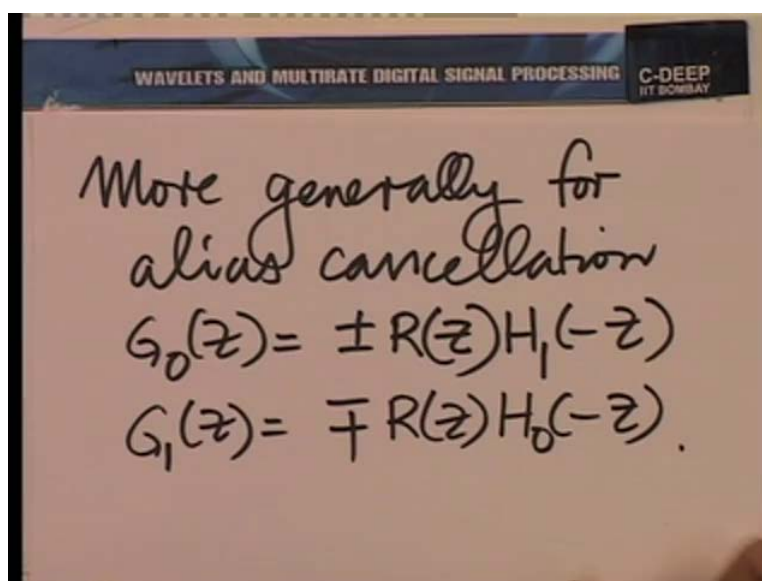 WAVELETS AND MULTIRATE DIGITAL SIGNAL PROCESSING
C-DEEP
IIT BOMBAY
More generally for
alias cancellation
G₀(z)= ± R(z)H₁(-z)
G₁(z)= ∓ R(z)H₀(-z).